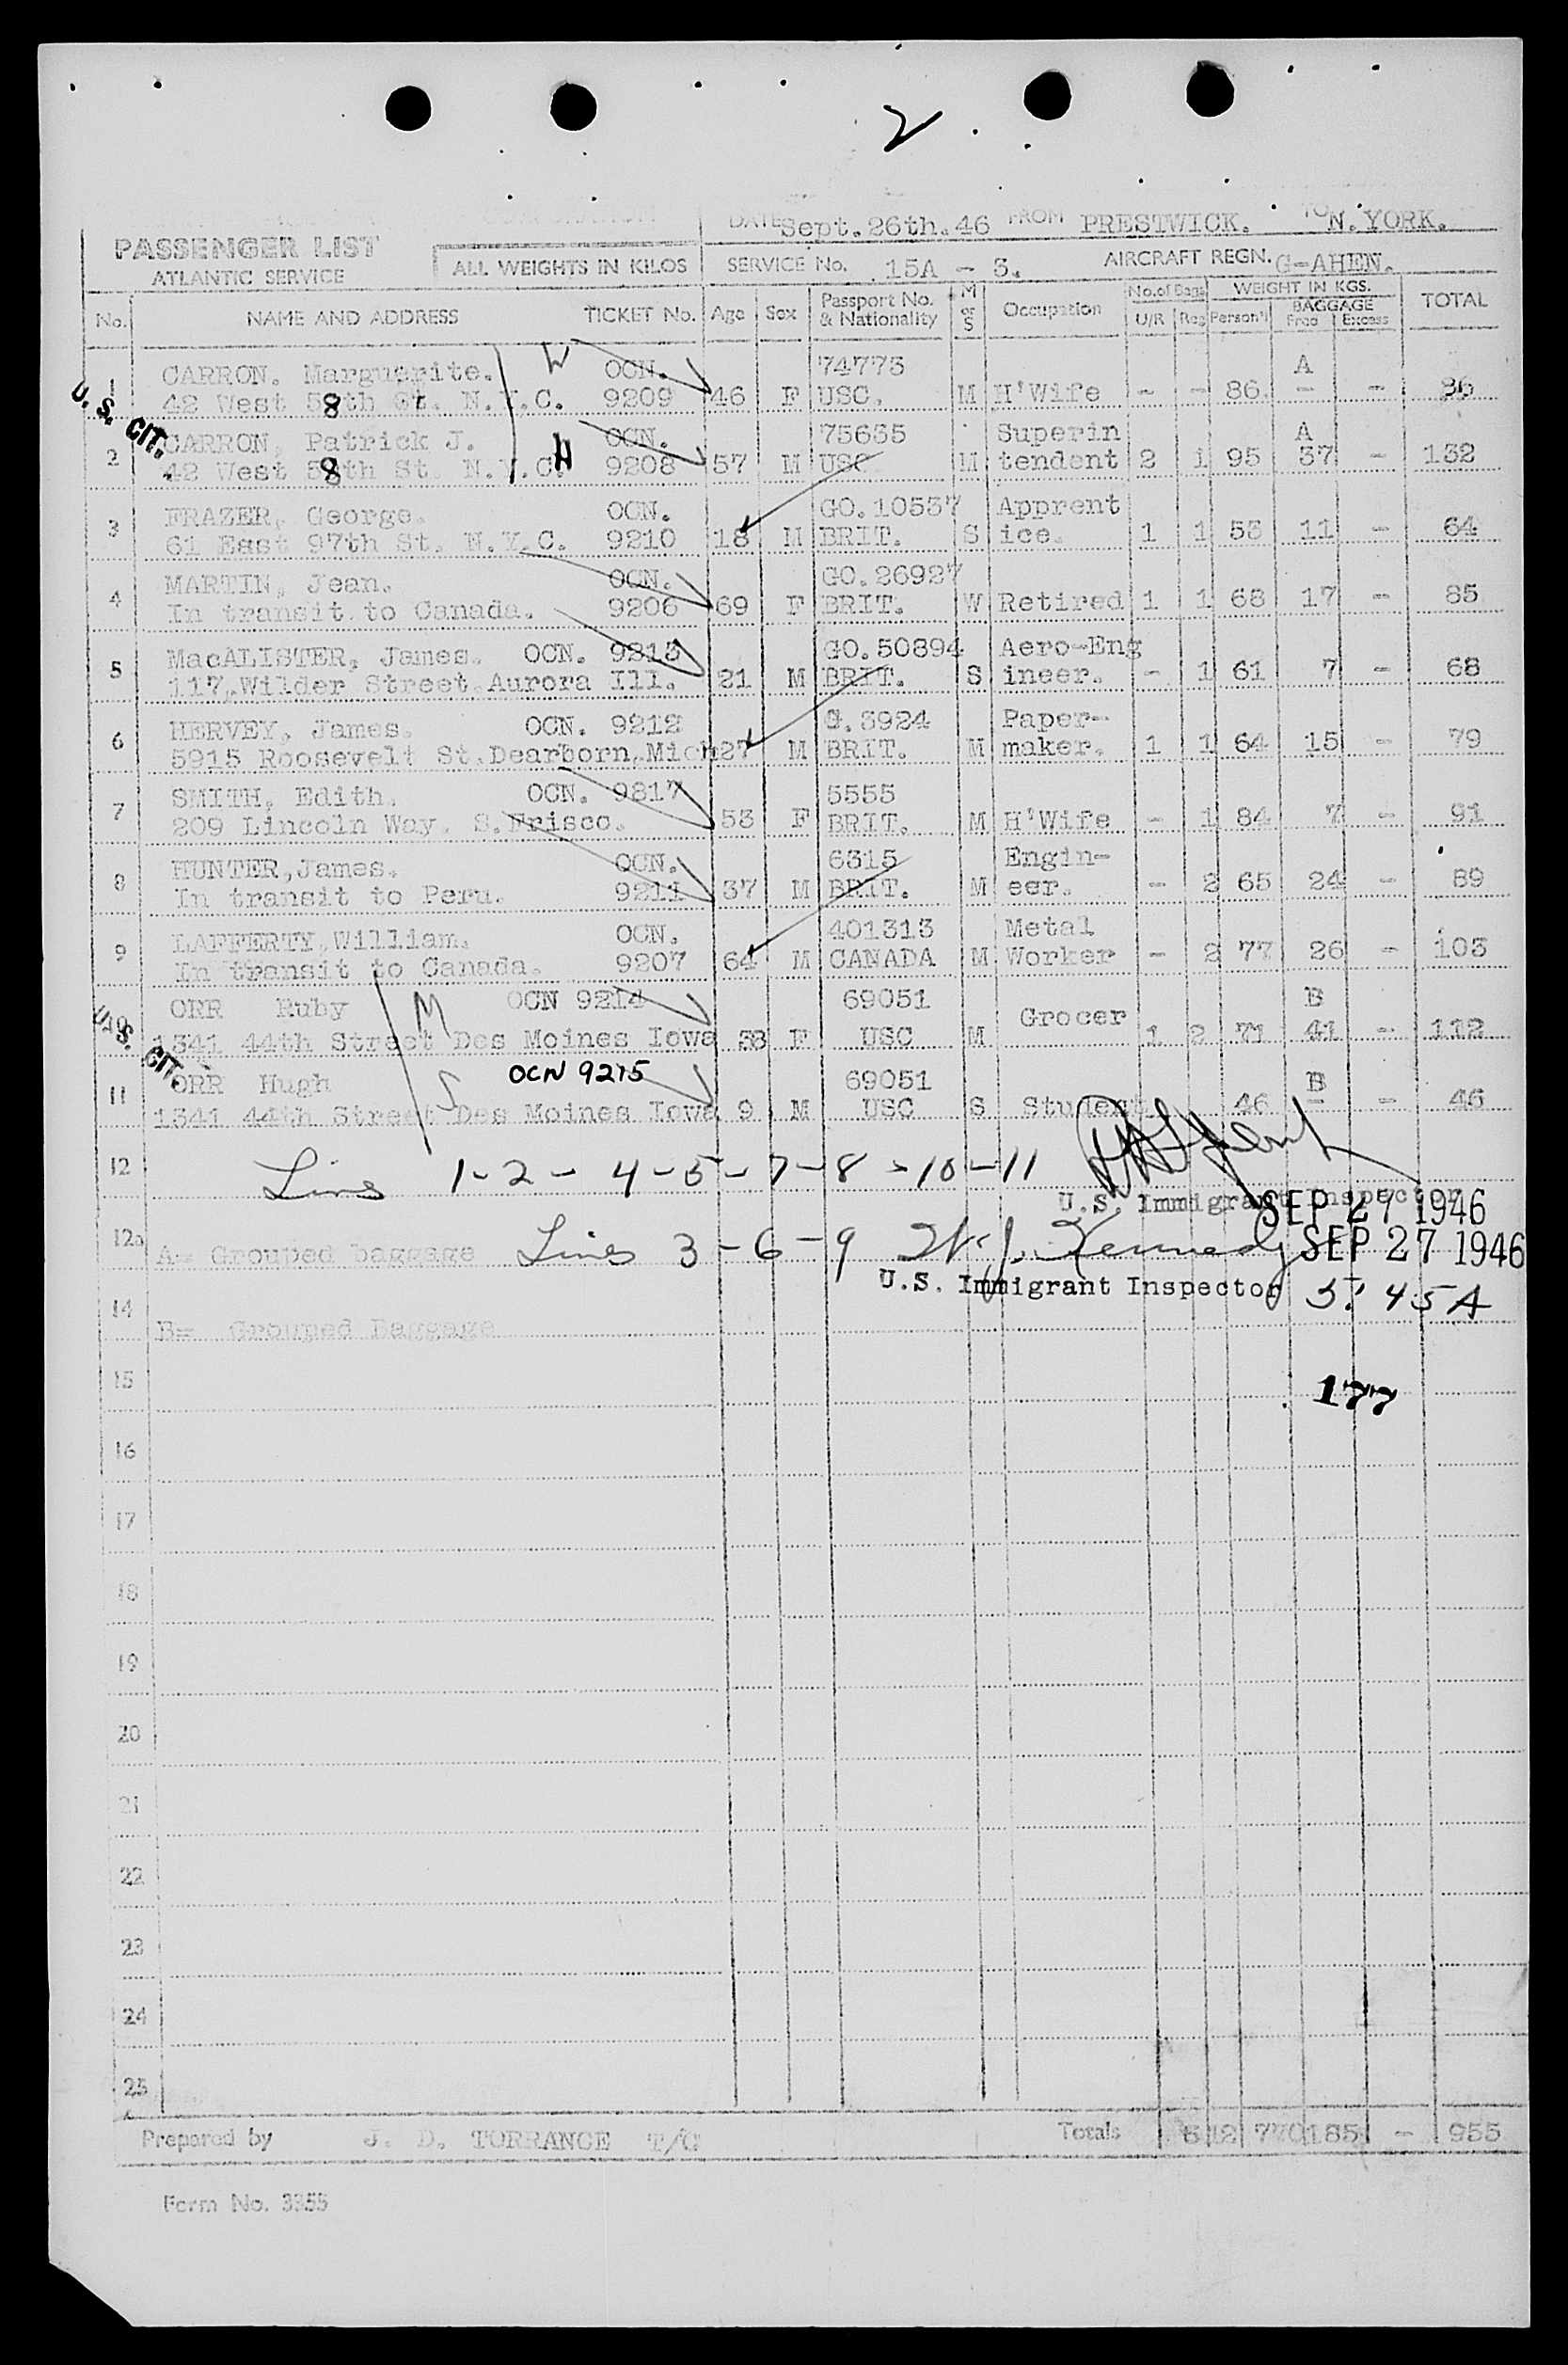 2
DATE Sept.26th.46 FROM PRESTWICK. TO N.YORK.
PASSENGER LIST
ATLANTIC SERVICE
ALL WEIGHTS IN KILOS
SERVICE No. 15A - 3. AIRCRAFT REGN. G-AHEN.
No. NAME AND ADDRESS TICKET No. Age Sex Passport No. & Nationality M or S Occupation No. of Bags U/R Reg WEIGHT IN KGS. Person'l BAGGAGE Free Excess TOTAL
CARRON. Marguerite. W OCN. 74773 A
1 42 West 58th St. N.Y.C. 9209 46 F USC. M H'Wife - - 86 - - 86
U. S. CIT.
CARRON, Patrick J. OCN. 75635 Superin A
2 42 West 58th St. N.Y.C. H 9208 57 M USC M tendent 2 1 95 37 - 132
FRAZER, George. OCN. GO.10537 Apprent
3 61 East 97th St. N.Y.C. 9210 18 M BRIT. S ice. 1 1 53 11 - 64
MARTIN, Jean. OCN. GO.26927
4 In transit to Canada. 9206 69 F BRIT. W Retired 1 1 68 17 - 85
MacALISTER, James. OCN. 9213 GO.50894 Aero-Eng
5 117.Wilder Street.Aurora Ill. 21 M BRIT. S ineer. - 1 61 7 - 68
HERVEY, James. OCN. 9212 3924 Paper-
6 5915 Roosevelt St.Dearborn.Mich 27 M BRIT. M maker. 1 1 64 15 - 79
SMITH, Edith. OCN. 9817 5555
7 209 Lincoln Way. S.Frisco. 53 F BRIT. M H'Wife - 1 84 7 - 91
HUNTER,James. OCN. 6315 Engin-
8 In transit to Peru. 9211 37 M BRIT. M eer. - 2 65 24 - 89
LAFFERTY.William. OCN. 401313 Metal
9 In transit to Canada. 9207 64 M CANADA M Worker - 2 77 26 - 103
ORR Ruby M OCN 9214 69051 Grocer B
10 1341 44th Street Des Moines Iowa 38 F USC M 1 2 71 41 - 112
U. S. CIT.
ORR Hugh S OCN 9215 69051 B
11 1341 44th Street Des Moines Iowa 9 M USC S Student 46 - - 46
12 Lines 1-2-4-5-7-8-10-11
U.S. Immigrant Inspector SEP 27 1946
12a A= Grouped baggage Lines 3-6-9 W.J. Kennedy SEP 27 1946
U.S. Immigrant Inspector 5:45A
14 B= Grouped Baggage
15 177
16
17
18
19
20
21
22
23
24
25
Prepared by J. D. TORRANCE T/C Totals 6 12 770 185 - 955
Form No. 3355